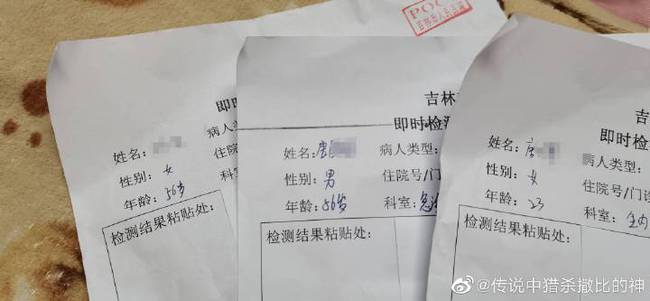 POC
即时
姓名：
病人类
性别：女
住院
年龄：56岁
科
检测结果粘贴处：
吉林
即时检测
姓名：唐
病人类型：
性别：男
住院号/门
年龄：56岁
科室：急
检测结果粘贴处：
吉
即时检
姓名：唐
病人类型：
性别：女
住院号/门诊
年龄：23
科室：
检测结果粘贴处：
@传说中猎杀撒比的神